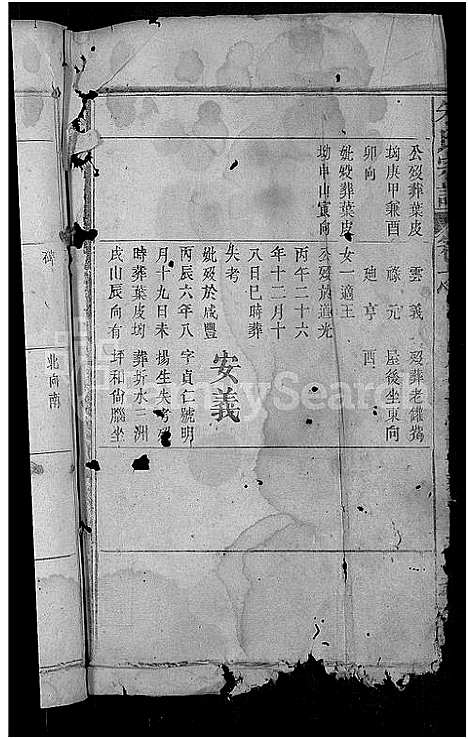 公歿葬葉皮
坳庚甲兼酉
卯向
妣歿葬葉皮
坳申山寅向
雲義
祿元
廸亨
女一適王
公歿於道光
丙午二十六
年十二月十
八日巳時葬
失考
妣歿於咸豐
丙辰六年八
月十九日未
時葬葉皮坳
戌山辰向有
碑
歿葬老
屋後坐東向
酉
安義
字貞仁號明
揚生失考
葬折水三洲
坪和尙腦坐
北向南
MySear